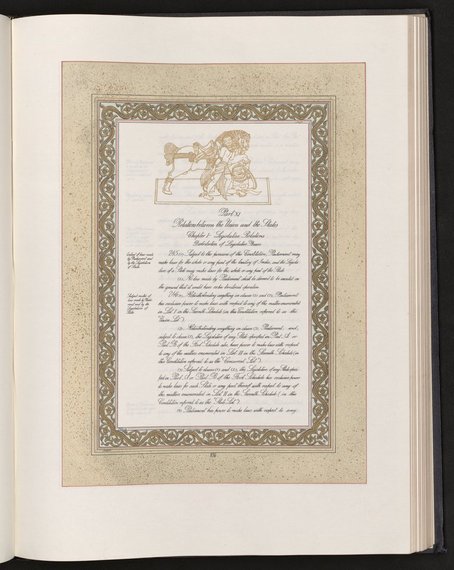 Part XI
Relations between the Union and the States
Chapter I- Legislative Relations
Distribution of Legislative Powers
Extent of laws made
by Parliament and
by the Legislatures
of States
245 (1). Subject to the provisions of this Constitution, Parliament may
make laws for the whole or any part of the territory of India, and the Legisla-
ture of a State may make laws for the whole or any part of the State.
(2). No law made by Parliament shall be deemed to be invalid on
the ground that it would have extra-territorial operation.
Subject-matter of
laws made by Parlia-
ment and by the
Legislatures of
States
246 (1). Notwithstanding anything in clauses (2) and (3), Parliament
has exclusive power to make laws with respect to any of the matters enumerated
in List I in the Seventh Schedule (in this Constitution referred to as the
"Union List").
(2). Notwithstanding anything in clause (3), Parliament, and,
subject to clause (1), the Legislature of any State specified in Part A or
Part B of the First Schedule also, have power to make laws with respect
to any of the matters enumerated in List III in the Seventh Schedule (in
this Constitution referred to as the "Concurrent List").
(3). Subject to clauses (1) and (2), the Legislature of any State speci-
fied in Part A or Part B of the First Schedule has exclusive power
to make laws for such State or any part thereof with respect to any of
the matters enumerated in List II in the Seventh Schedule (in this
Constitution referred to as the "State List").
(4). Parliament has power to make laws with respect to any